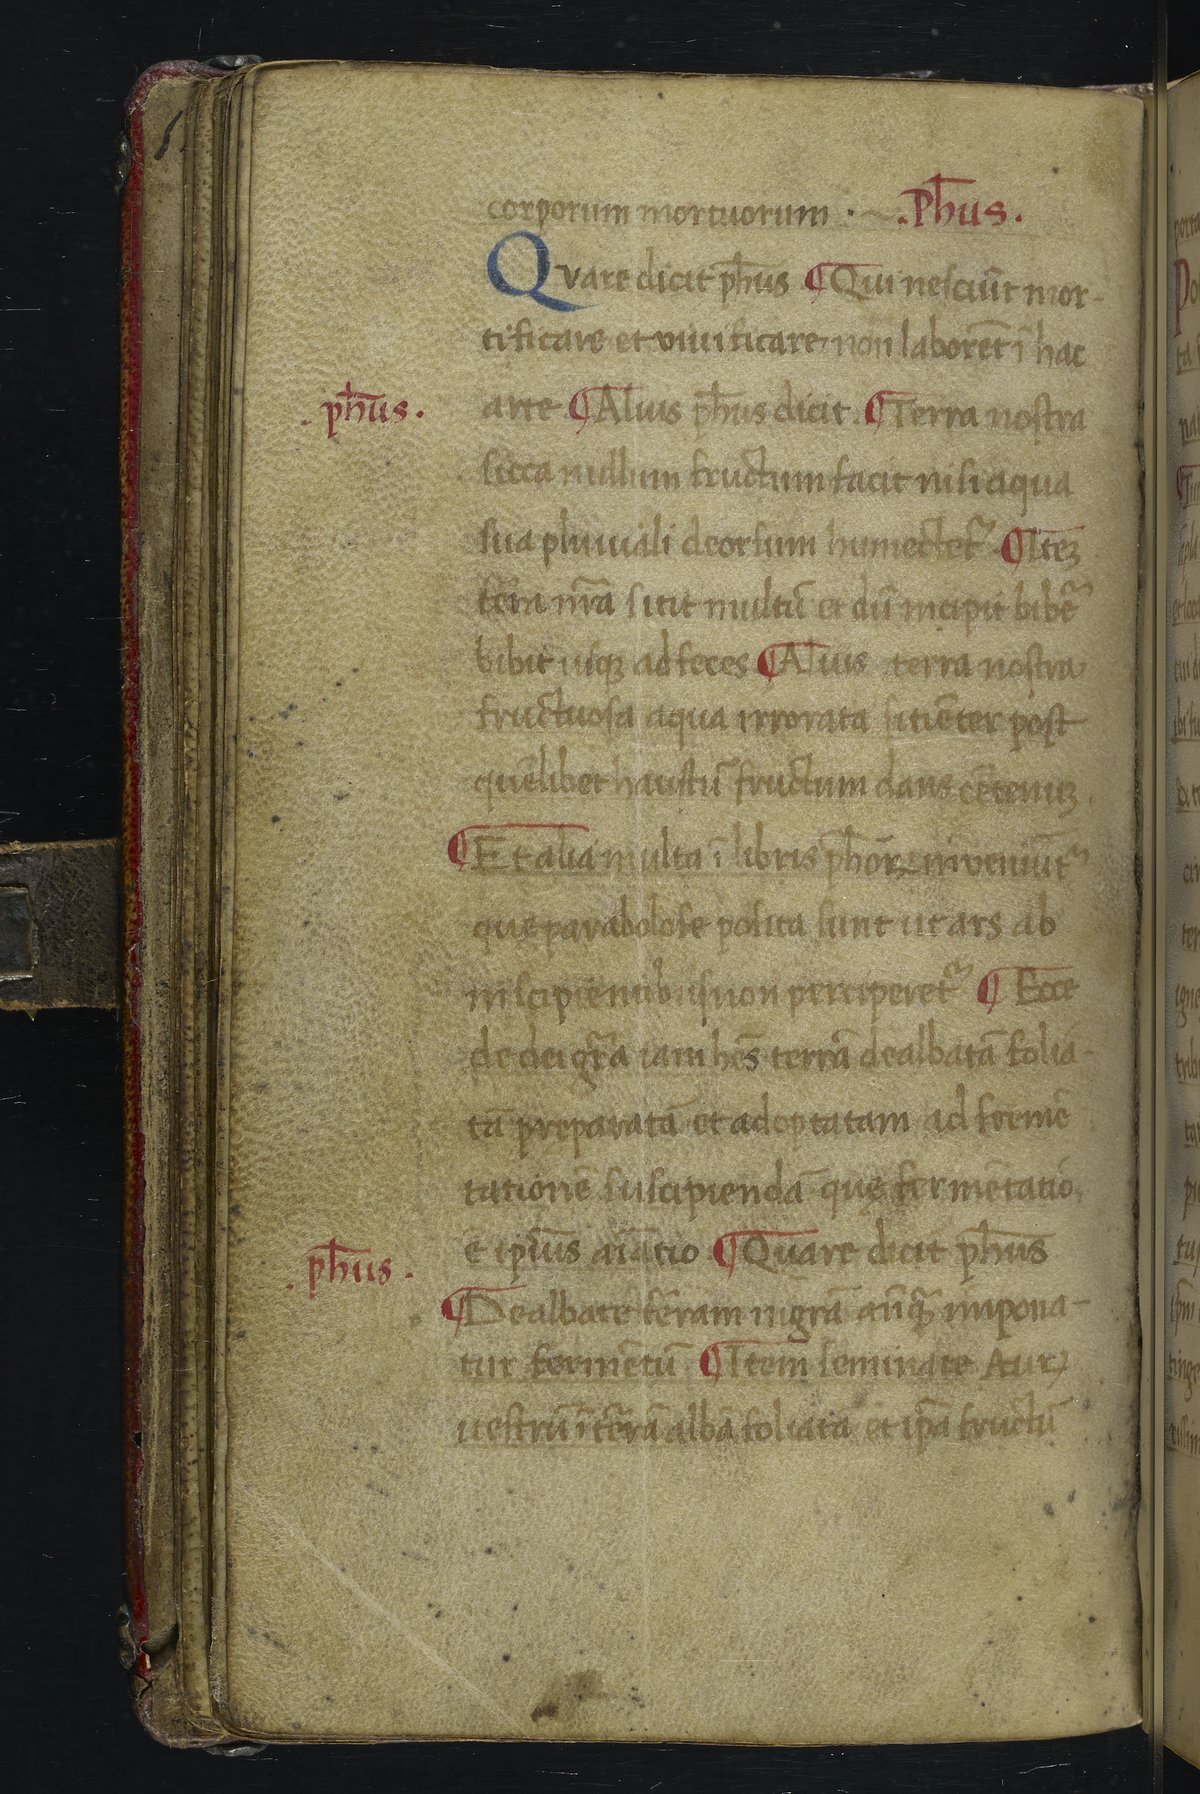 corporum mortuorum · .Ph̄us.
Quare dicit ph̄us ¶ Qui nesciūt mor-
tificare et viuificare non laborēt ī hac
. ph̄us .
arte ¶ Alius ph̄us dicit . ¶ Terra nostra
sicca nullum fructum facit nisi aqua
sua pluuiali deorsum humectet᷑ . ¶ Iteꝫ
t̄ra nr̄a sitit multū et dū incipit bibe᷑
bibit usqꝫ ad feces ¶ Alius terra nostra
fructuosa aqua irrorata sitiēter post
quēlibet haustū fructum dans
¶ Et alia multa ī libris ph̄oꝝ inveniūt᷑
que parabolose posita sunt ut ars ab
inscipientibus non perciperet᷑ ¶ Ecce
de dei gr̄a iam hēs terrā dealbatā folia-
tā preparatā et adoptatam ad fermē
tationē suscipiendā que fermētatio
ē ip̄ius aīatio ¶ Quare dicit ph̄us
. ph̄us .
¶ Dealbate t̄ram nigrā anꝙ̄ impona-
tur fermētū ¶ Item seminate Auꝝ
uestrū ī t̄rā albā foliatā et ip̄a fructū